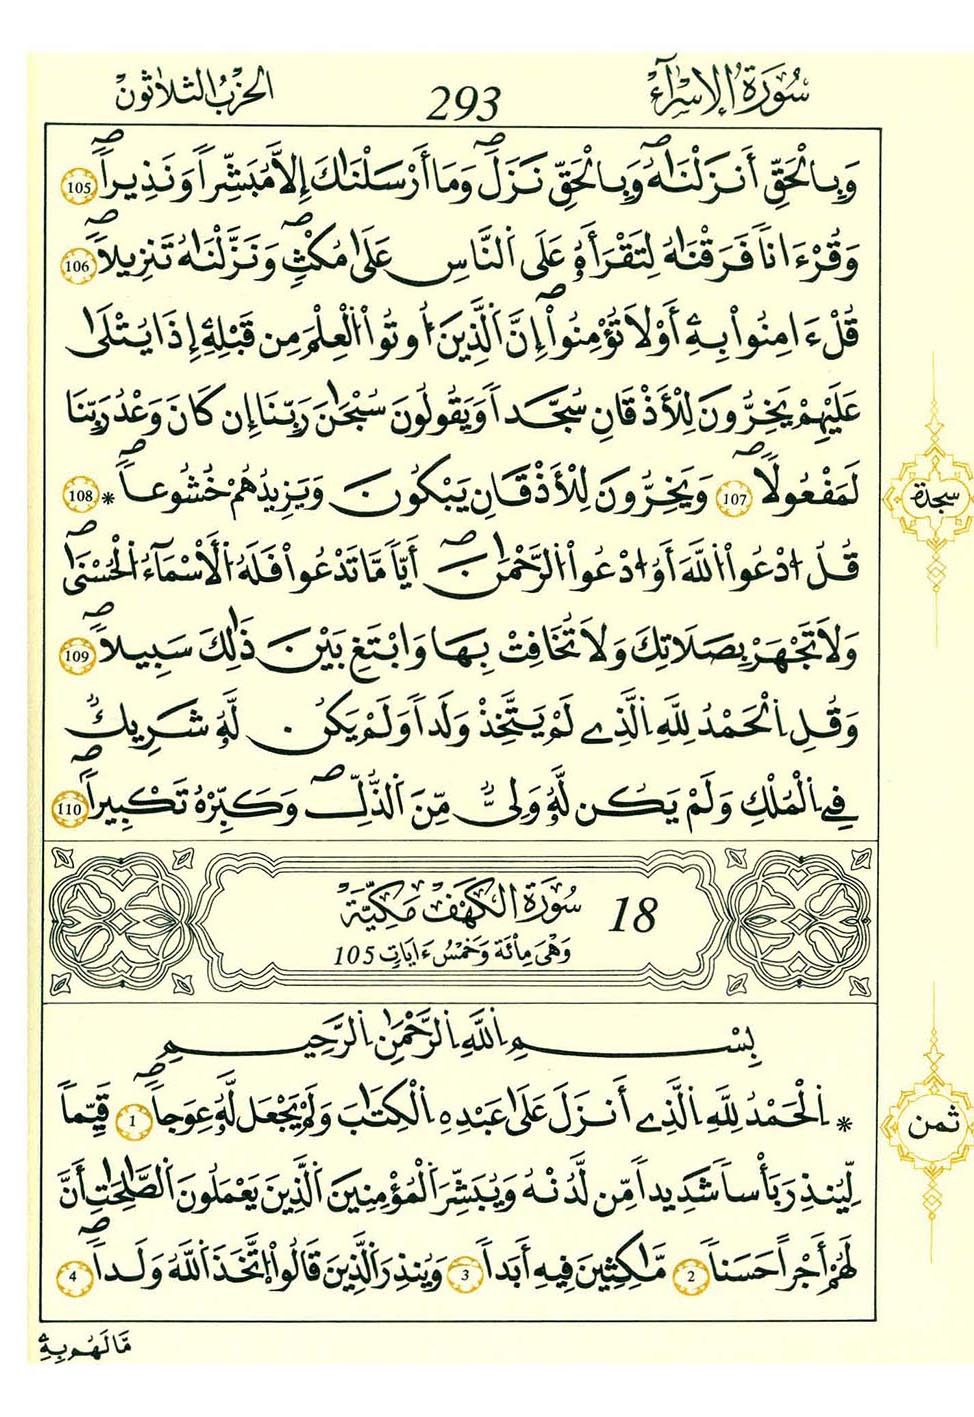 سُورَةُ الإِسْرَآءِ 293 الحِزْبُ الثَّلاَثُونَ
وَبِالْحَقِّ أَنزَلْنَٰهُۖ وَبِالْحَقِّ نَزَلَۖ وَمَا أَرْسَلْنَٰكَ إِلاَّ مُبَشِّراً وَنَذِيراًۖ 105
وَقُرْءَاناً فَرَقْنَٰهُ لِتَقْرَأَهُۥ عَلَى اَلنَّاسِ عَلَىٰ مُكْثٍۖ وَنَزَّلْنَٰهُ تَنزِيلاًۖ 106
قُلْ ءَامِنُواْ بِهِۦٓ أَوْ لاَ تُؤْمِنُوٓاْۖ إِنَّ اَلذِينَ أُوتُواْ اُلْعِلْمَ مِن قَبْلِهِۦٓ إِذَا يُتْلَىٰ
عَلَيْهِمْ يَخِرُّونَ لِلْأَذْقَانِ سُجَّداً وَيَقُولُونَ سُبْحَٰنَ رَبِّنَا إِن كَانَ وَعْدُ رَبِّنَا
لَمَفْعُولاًۖ 107 وَيَخِرُّونَ لِلْأَذْقَانِ يَبْكُونَ وَيَزِيدُهُمْ خُشُوعاًۖ * 108
قُلُ ادْعُواْ اُللَّهَ أَوُ ادْعُواْ اُلرَّحْمَٰنَۖ أَيّاً مَّا تَدْعُواْ فَلَهُ اُلْأَسْمَآءُ اُلْحُسْنَىٰ
وَلاَ تَجْهَرْ بِصَلاَتِكَ وَلاَ تُخَافِتْ بِهَا وَابْتَغِ بَيْنَ ذَٰلِكَ سَبِيلاًۖ 109
وَقُلِ اِلْحَمْدُ لِلهِ اِلذِے لَمْ يَتَّخِذْ وَلَداً وَلَمْ يَكُن لَّهُۥ شَرِيكٌ
فِے اِلْمُلْكِ وَلَمْ يَكُن لَّهُۥ وَلِيٌّ مِّنَ اَلذُّلِّۖ وَكَبِّرْهُ تَكْبِيراًۖ 110
18 سُورَةُ الكَهْفِ مَكِّيَّة
وَهْيَ مِائَة وَخَمْسُ ءَايَاتٍ 105
بِسْمِ اِللَّهِ اِلرَّحْمَٰنِ اِلرَّحِيمِ
* اِلْحَمْدُ لِلهِ اِلذِے أَنزَلَ عَلَىٰ عَبْدِهِ اِلْكِتَٰبَ وَلَمْ يَجْعَل لَّهُۥ عِوَجاًۖ 1 قَيِّماً
لِّيُنذِرَ بَأْساً شَدِيداً مِّن لَّدُنْهُ وَيُبَشِّرَ اَلْمُؤْمِنِينَ اَلذِينَ يَعْمَلُونَ اَلصَّٰلِحَٰتِ أَنَّ
لَهُمْ أَجْراً حَسَناً 2 مَّٰكِثِينَ فِيهِ أَبَداً 3 وَيُنذِرَ اَلذِينَ قَالُواْ اُتَّخَذَ اَللَّهُ وَلَداًۖ 4
مَّا لَهُم بِهِۦ
سجدة
ثمن